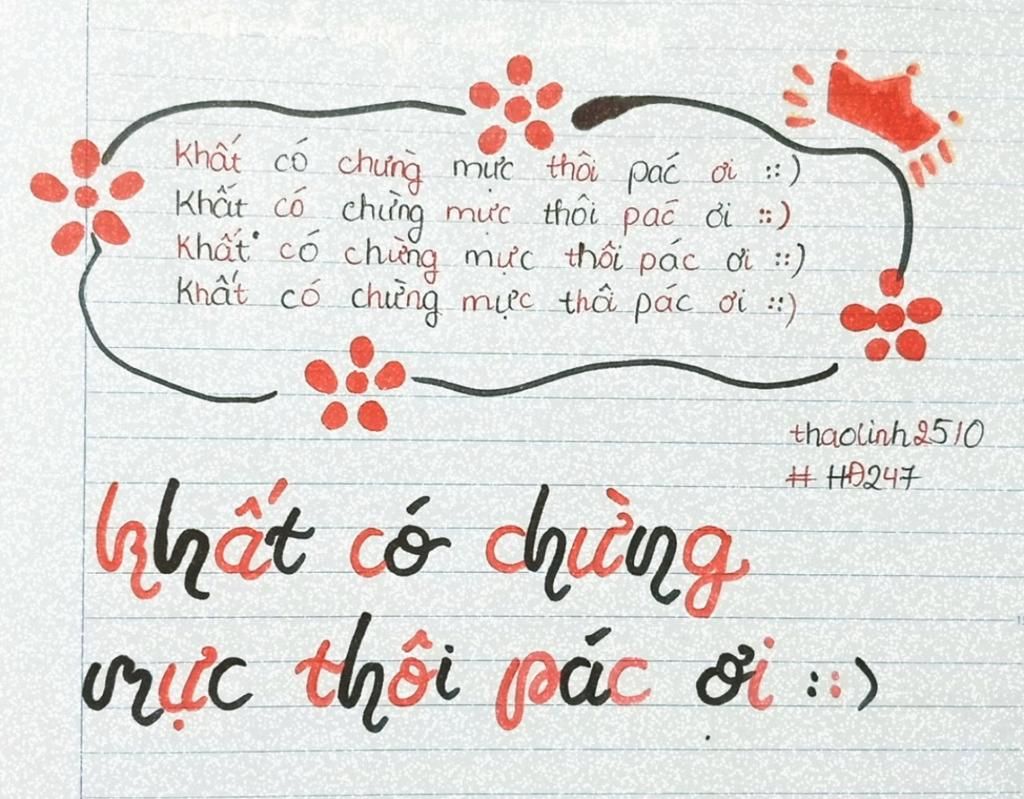 Khất có chừng mực thôi pác ơi ::)
Khất có chừng mực thôi pác ơi ::)
Khất có chừng mực thôi pác ơi ::)
Khất có chừng mực thôi pác ơi ::)
thaolinh2510
# HĐ247
Khất có chừng
mực thôi pác ơi ::)